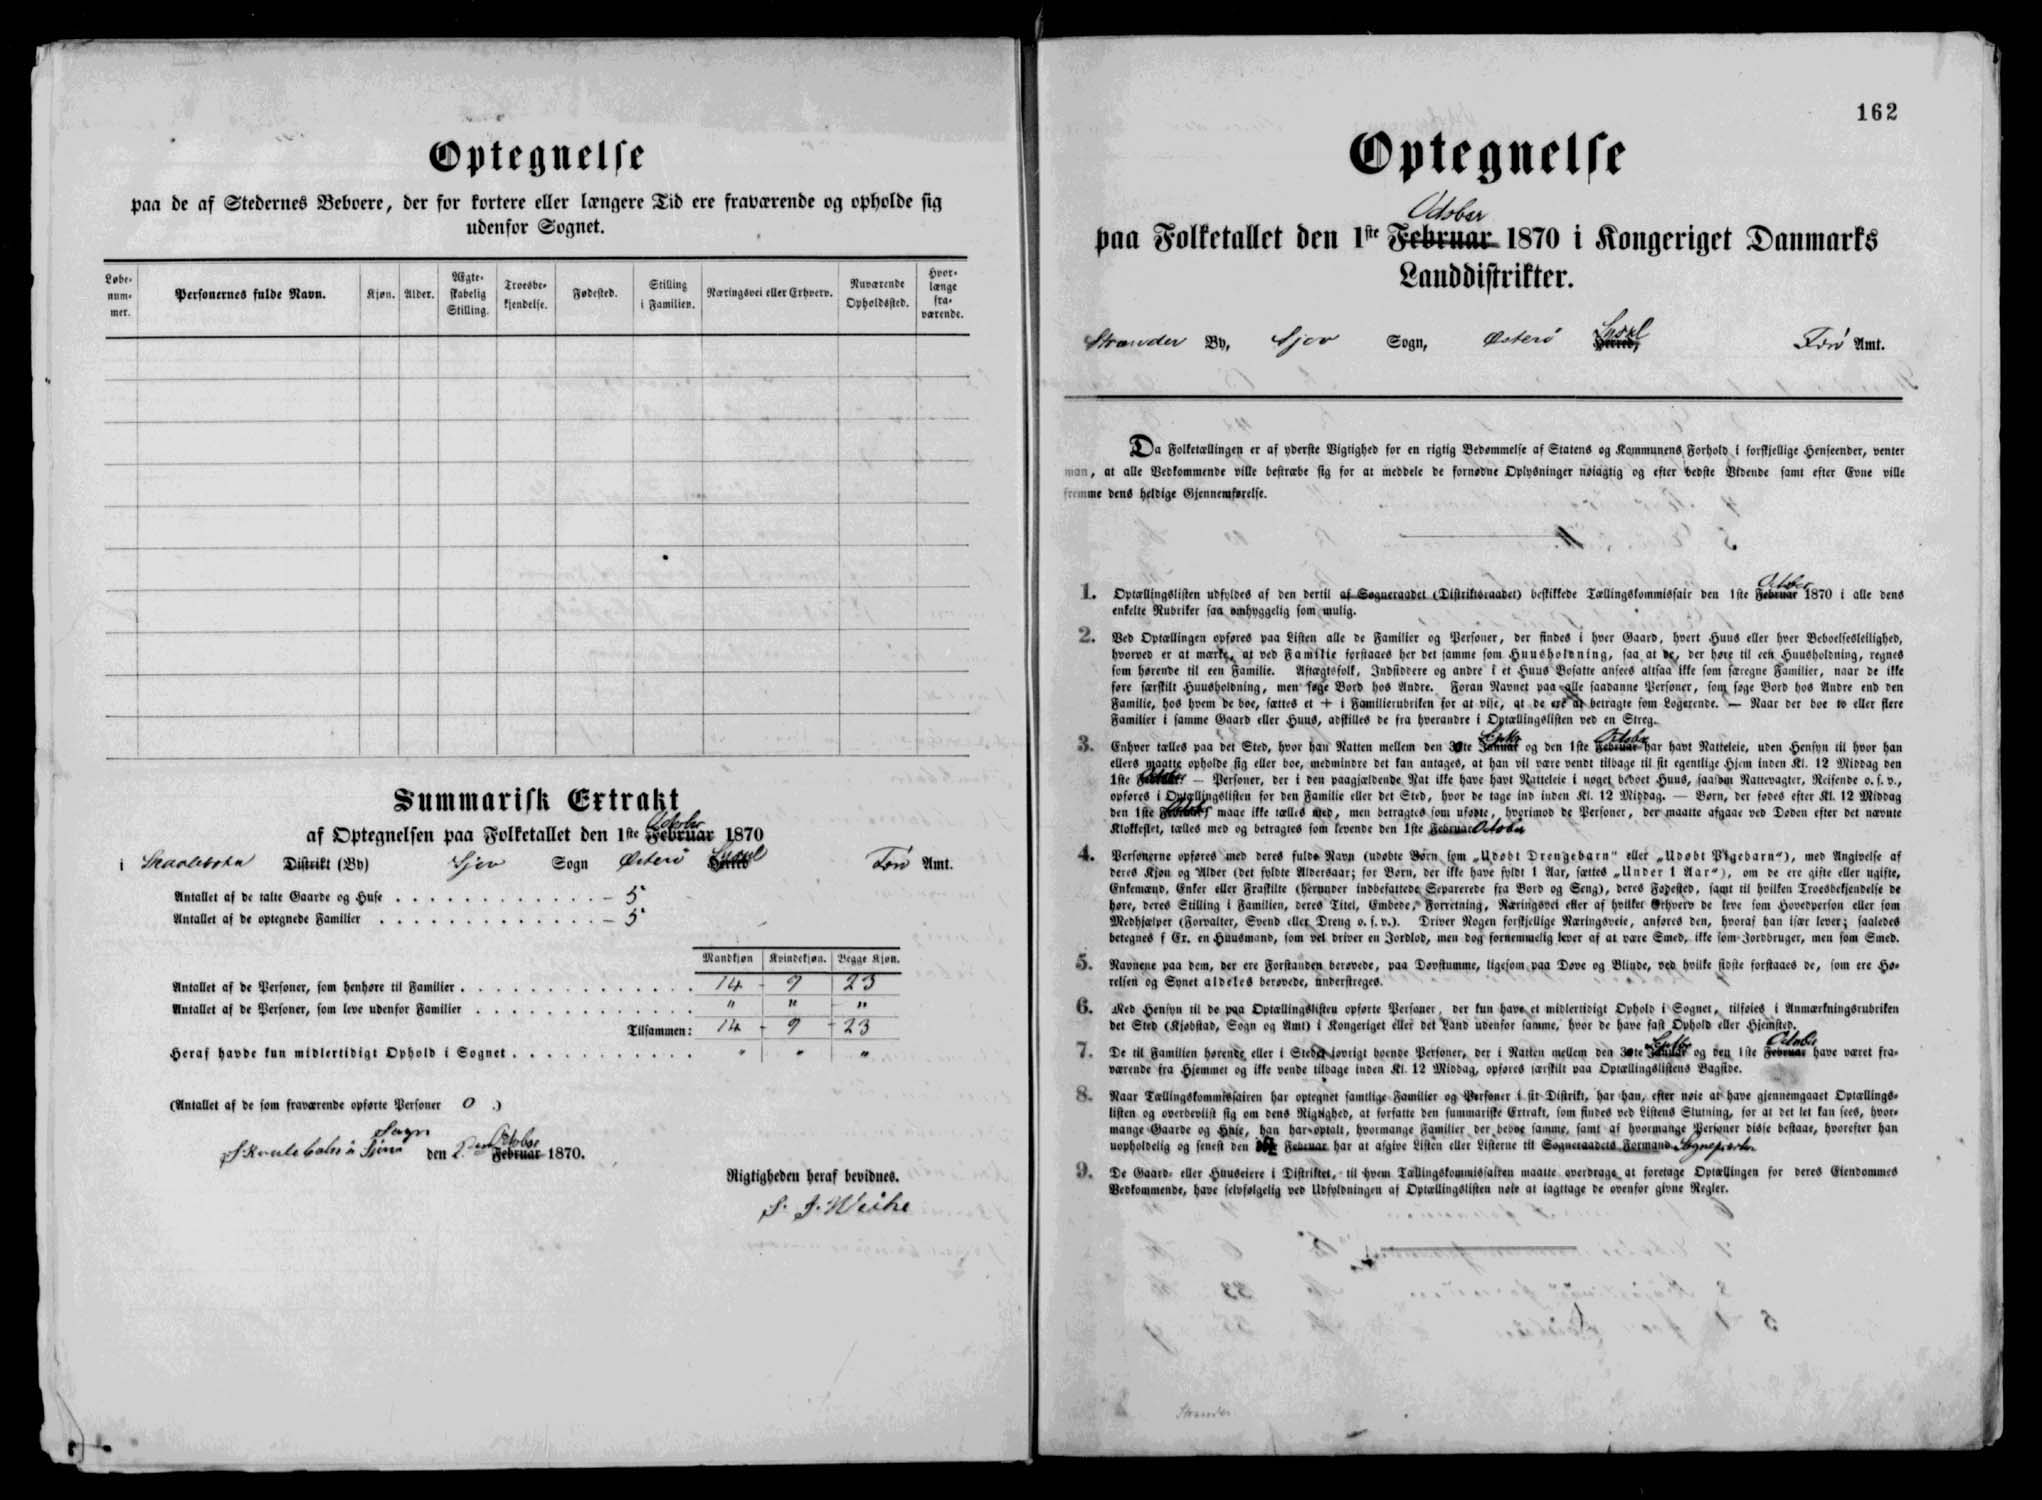 Optegnelse
paa de af Stedernes Beboere, der for kortere eller længere Tid ere fraværende og opholde sig
udenfor Sognet.
Løbe-nummer. Personernes fulde Navn. Kjøn. Alder. Ægteskabelig Stilling. Troesbekjendelse. Fødested. Stilling i Familien. Næringsvei eller Erhverv. Nuværende Opholdssted. Hvorlænge fraværende.
Summarisk Extrakt
October
af Optegnelsen paa Folketallet den 1ste Februar 1870
i Distrikt (By) Sjov Sogn Østerö Syssel Herred Færö Amt.
Antallet af de talte Gaarde og Huse 5
Antallet af de optegnede Familier 5
Mandkjøn Kvindekjøn. Begge Kjøn.
Antallet af de Personer, som henhøre til Familier 14 9 23
Antallet af de Personer, som leve udenfor Familier " " "
Tilsammen: 14 9 23
Heraf havde kun midlertidigt Ophold i Sognet " " "
(Antallet af de som fraværende opførte Personer 0 )
Sogn October
den 2den Februar 1870.
Rigtigheden heraf bevidnes.
S. J. Weihe
162
Optegnelse
October
paa Folketallet den 1ste Februar 1870 i Kongeriget Danmarks
Landdistrikter.
Strænder By, Sjov Sogn, Østerö Syssel Herred, Færö Amt.
Da Folketællingen er af yderste Vigtighed for en rigtig Bedømmelse af Statens og Kommunens Forhold i forskjellige Henseender, venter
man, at alle Vedkommende ville bestræbe sig for at meddele de fornødne Oplysninger nøiagtig og efter bedste Vidende samt efter Evne ville
fremme dens heldige Gjennemførelse.
1. Optællingslisten udfyldes af den dertil af Sogneraadet (Distriktsraadet) beskikkede Tællingskommissair den 1ste Februar October 1870 i alle dens
enkelte Rubriker saa omhyggelig som mulig.
2. Ved Optællingen opføres paa Listen alle de Familier og Personer, der findes i hver Gaard, hvert Huus eller hver Beboelsesleilighed,
hvorved er at mærke, at ved Familie forstaaes her det samme som Huusholdning, saa at de, der høre til een Huusholdning, regnes
som hørende til een Familie. Aftægtsfolk, Indsiddere og andre i et Huus Bosatte ansees altsaa ikke som særegne Familier, naar de ikke
føre særskilt Huusholdning, men søge Bord hos Andre. Foran Navnet paa alle saadanne Personer, som søge Bord hos Andre end den
Familie, hos hvem de boe, sættes et + i Familierubriken for at vise, at de ere at betragte som Logerende. — Naar der boe to eller flere
Familier i samme Gaard eller Huus, adskilles de fra hverandre i Optællingslisten ved en Streg.
3. Enhver tælles paa det Sted, hvor han Natten mellem den 30te Januar Septbr og den 1ste Februar October har havt Natteleie, uden Hensyn til hvor han
ellers maatte opholde sig eller boe, medmindre det kan antages, at han vil være vendt tilbage til sit egentlige Hjem inden Kl. 12 Middag den
1ste Februar October — Personer, der i den paagjældende Nat ikke have havt Natteleie i noget beboet Huus, saasom Nattevagter, Reisende o. s. v.,
opføres i Optællingslisten for den Familie eller det Sted, hvor de tage ind inden Kl. 12 Middag. — Børn, der fødes efter Kl. 12 Middag
den 1ste Februar October maae ikke tælles med, men betragtes som ufødte, hvorimod de Personer, der maatte afgaae ved Døden efter det nævnte
Klokkeslet, tælles med og betragtes som levende den 1ste Februar October
4. Personerne opføres med deres fulde Navn (udøbte Børn som „Udøbt Drengebarn" eller „Udøbt Pigebarn"), med Angivelse af
deres Kjøn og Alder (det fyldte Aldersaar; for Børn, der ikke have fyldt 1 Aar, sættes „Under 1 Aar"), om de ere gifte eller ugifte,
Enkemænd, Enker eller Fraskilte (herunder indbefattede Separerede fra Bord og Seng), deres Fødested, samt til hvilken Troesbekjendelse de
høre, deres Stilling i Familien, deres Titel, Embede, Forretning, Næringsvei eller af hvilket Erhverv de leve som Hovedperson eller som
Medhjælper (Forvalter, Svend eller Dreng o. s. v.). Driver Nogen forskjellige Næringsveie, anføres den, hvoraf han især lever; saaledes
betegnes f Ex. en Huusmand, som vel driver en Jordlod, men dog fornemmelig lever af at være Smed, ikke som Jordbruger, men som Smed.
5. Navnene paa dem, der ere Forstanden berøvede, paa Døvstumme, ligesom paa Døve og Blinde, ved hvilke sidste forstaaes de, som ere Hø-
relsen og Synet aldeles berøvede, understreges.
6. Med Hensyn til de paa Optællingslisten opførte Personer, der kun have et midlertidigt Ophold i Sognet, tilføies i Anmærkningsrubriken
det Sted (Kjøbstad, Sogn og Amt) i Kongeriget eller det Land udenfor samme, hvor de have fast Ophold eller Hjemsted.
7. De til Familien hørende eller i Stedet iøvrigt boende Personer, der i Natten mellem den 30te Januar Septbr og den 1ste Februar October have været fra-
værende fra Hjemmet og ikke vende tilbage inden Kl. 12 Middag, opføres særskilt paa Optællingslistens Bagside.
8. Naar Tællingskommissairen har optegnet samtlige Familier og Personer i sit Distrikt, har han, efter nøie at have gjennemgaaet Optællings-
listen og overbeviist sig om dens Rigtighed, at forfatte den summariske Extrakt, som findes ved Listens Slutning, for at det let kan sees, hvor-
mange Gaarde og Huse, han har optalt, hvormange Familier der beboe samme, samt af hvormange Personer disse bestaae, hvorefter han
uopholdelig og senest den Februar har at afgive Listen eller Listerne til Sogneraadets Formand Sognepræsten
9. De Gaard- eller Huuseiere i Distriktet, til hvem Tællingskommissairen maatte overdrage at foretage Optællingen for deres Eiendommes
Vedkommende, have selvfølgelig ved Udfyldningen af Optællingslisten nøie at iagttage de ovenfor givne Regler.
Strænder